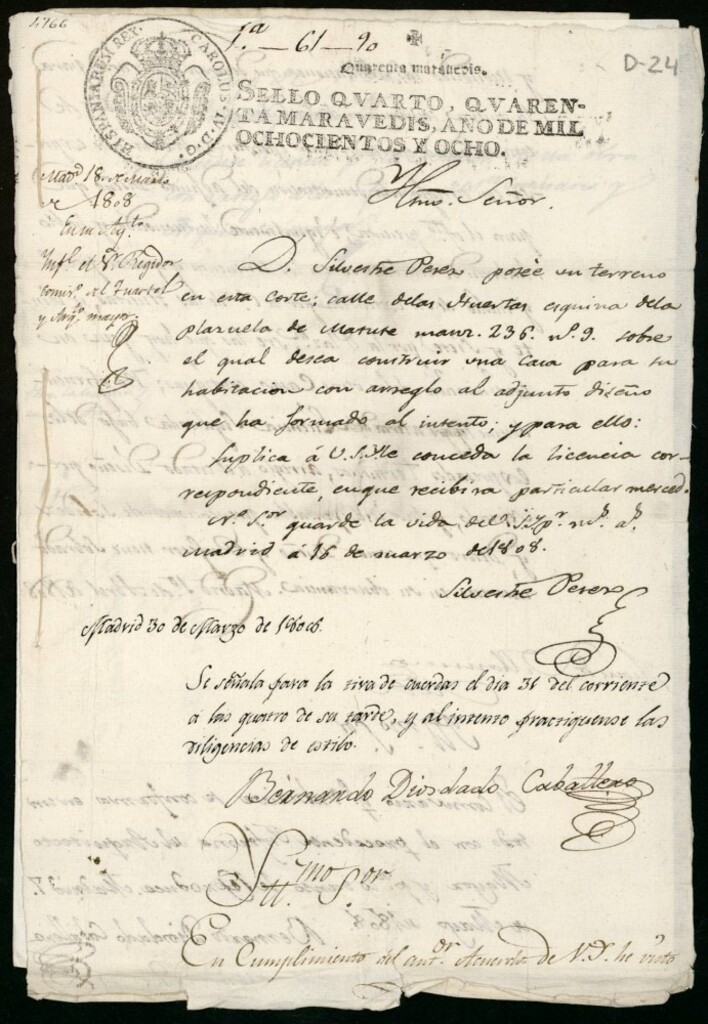 4766
1.ª - 61 - 90
D-24
HISPANIARUM REX. CAROLUS IV D. G.
Quarenta maravedis.
SELLO QVARTO, QVAREN-
TA MARAVEDIS, AÑO DE MIL
OCHOCIENTOS Y OCHO.
Mad.d 18 de Marzo
de 1808
En su Ay.to
Inf.e el S.r Regidor
comis.o del Quartel
y Arq.o mayor.
Ylmo. Señor.
D. Silvestre Perez posèe un terreno
en esta Corte, calle delas Huertas esquina dela
plazuela de Matute manz. 236. n.o 9. sobre
el qual desea construir una casa para su
habitacion con arreglo al adjunto diseño
que ha formado al intento; y para ello:
Suplica á V.S.Y. le conceda la licencia cor-
respondiente, enque recibira particular merced.
N.ro S.or guarde la vida de V.S.Y. p.r m.s a.s
Madrid á 16 de marzo de 1808.
Silvestre Perez
Madrid 30 de Marzo de 1808.
Se señala para la tira de cuerdas el dia 31 del corriente
á las quatro de su tarde, y al intento practiquense las
diligencias de estilo.
Bernardo Diosdado Caballero
Yll.mo S.or
En Cumplimiento del ant.or Acuerdo de V.S. he visto